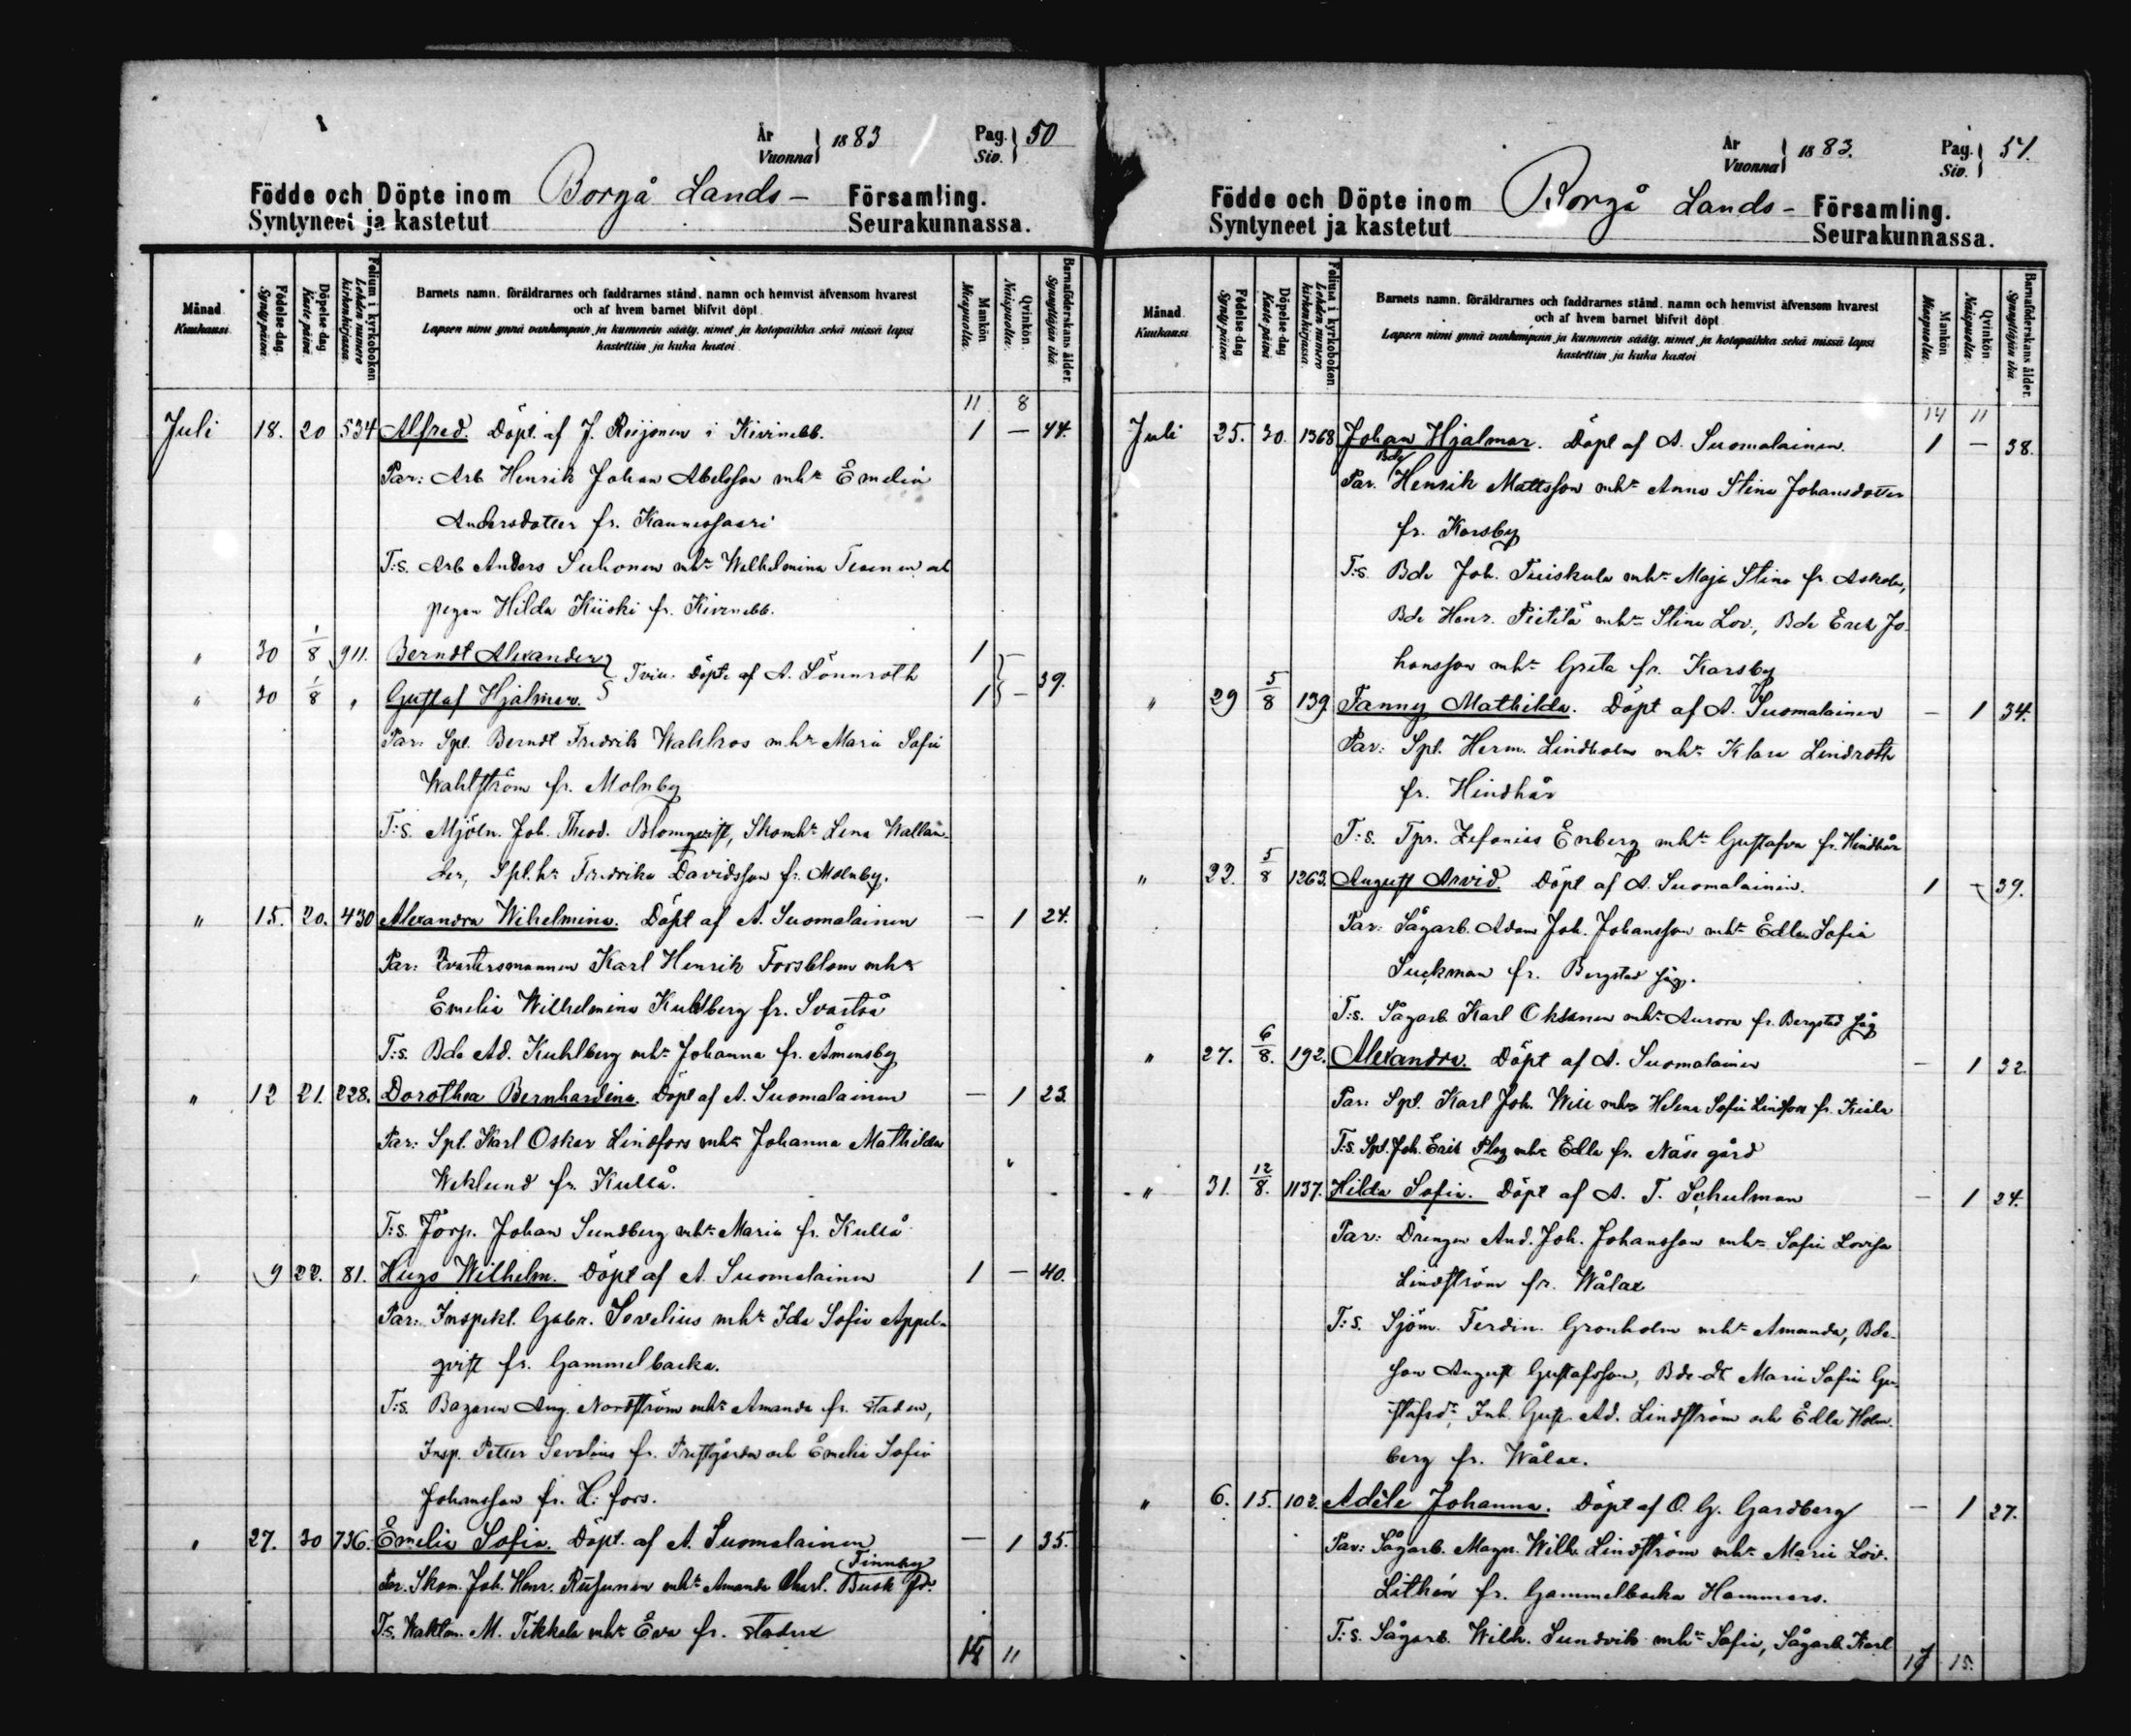 År
Vuonna } 1883
Pag.
Siv. } 50
Födde och Döpte inom Borgå Lands- Församling.
Syntyneet ja kastetut Seurakunnassa.
Månad
Kuukausi
Födelse-dag
Syntypäivä.
Döpelse-dag
Kastepäivä
Folium i kyrkoboken
Lehden numero kirkonkirjassa.
Barnets namn, föräldrarnes och faddrarnes stånd, namn och hemvist äfvensom hvarest
och af hvem barnet blifvit döpt
Lapsen nimi ynnä vanhempain ja kummein sääty, nimet ja kotopaikka sekä missä lapsi
kastettiin ja kuka kastoi
Mankön
Miespuolia.
Qvinkön
Naispuolia.
Barnaföderskans ålder.
Synnyttäjän ikä.
11 8
Juli 18. 20 534 Alfred. Döpt. af J. Reijonen i Kivinebb. 1 — 44.
Par: Arb Henrik Johan Abelsson mhr Emelia
Andersdotter fr. Kannessaari
T:s. Arb Anders Suhonen mhr Wilhelmina och
pigan Hilda Kiiski fr. Kivinebb.
" 30 1/8 911. Berndt Alexander 1 —
Tvill. Döpte af A. Lönnroth 39.
" 30 1/8 " Gustaf Hjalmar. 1 —
Par: Spl. Berndt Fredrik Wahlroos mhr Maria Sofia
Wahlström fr. Molnby
T:s. Mjöln. Joh. Theod. Blomqvist, Skomhr Lena Wallan-
der, Spl.hr Fredrika Davidsson fr. Molnby.
" 15. 20. 430 Alexandra Wilhelmina. Döpt af A. Suomalainen — 1 24.
Par: Qvartersmannen Karl Henrik Forsblom mhr
Emelia Wilhelmina Kuhlberg fr. Svartså
T:s. Bde Ad. Kuhlberg mhr Johanna fr. Åmensby
" 12 21. 228. Dorothea Bernhardina. Döpt af A. Suomalainen — 1 23
Par: Spl. Karl Oskar Lindfors mhr Johanna Mathilda
Weklund fr. Kullå.
T:s. Torp. Johan Sundberg mhr Maria fr. Kullå
" 9 22. 81. Hugo Wilhelm. Döpt af A. Suomalainen 1 — 40.
Par: Inspekt. Gabr. Sevelius mhr Ida Sofia Appel-
qvist fr. Gammelbacka.
T:s. Bagaren Aug. Nordström mhr Amanda fr. staden,
Insp. Petter Sevelius fr. Prestgården och Emelia Sofia
Johansson fr. H:fors.
" 27. 30 736. Emelia Sofia. Döpt. af A. Suomalainen — 1 35.
Finnby
Par. Skom. Joh. Henr. mhr Amanda Charl. Busk fr.
T:s. Waktm. M. Tikkala mhr Eva fr. staden
11
År
Vuonna } 1883.
Pag.
Siv. } 51.
Födde och Döpte inom Borgå Lands- Församling.
Syntyneet ja kastetut Seurakunnassa.
Månad
Kuukausi
Födelse-dag
Syntypäivä.
Döpelse-dag
Kastepäivä
Folium i kyrkoboken
Lehden numero kirkonkirjassa.
Barnets namn, föräldrarnes och faddrarnes stånd, namn och hemvist äfvensom hvarest
och af hvem barnet blifvit döpt
Lapsen nimi ynnä vanhempain ja kummein sääty, nimet ja kotopaikka sekä missä lapsi
kastettiin ja kuka kastoi
Mankön
Miespuolia.
Qvinkön
Naispuolia.
Barnaföderskans ålder.
Synnyttäjän ikä.
14 11
Juli 25. 30. 1368 Johan Hjalmar. Döpt af A. Suomalainen. 1 — 38.
Bde
Par. Henrik Mattsson mhr Anna Stina Johansdotter
fr. Karsby
T:s. Bde Joh. Tuiskula mhr Maja Stina fr. Askola,
Bde Henr. Pietilä mhr Stina Lov., Bde Erik Jo-
hansson mhr Greta fr. Karsby
" 29 5/8 139. Fanny Mathilda. Döpt af A. Suomalainen — 1 34.
Par: Spl. Herm. Lindholm mhr Klara Lindroth
fr. Hindhår
T:s. Tpr. Zefanias Enberg mhr Gustafva fr. Hindhår
" 22. 5/8 1263. August Arvid. Döpt af A. Suomalainen. 1 — 39.
Par: Sågarb. Adam Joh. Johansson mhr Edla Sofia
Suckman fr. Bergstad såg.
T:s. Sågarb. Karl Oksanen mhr Aurora fr. Bergstad såg
" 27. 6/8. 192. Alexandra. Döpt af A. Suomalainen — 1 32
Par: Spl. Karl Joh. Wiik mhr Helena Sofia Lindfors fr. Kiala
T:s. Spl. Joh. Erik Plog mhr Edla fr. Näse gård
" 31. 12/8. 1137. Hilda Sofia. Döpt af A. T. Schulman — 1 24.
Par: Drängen And. Joh. Johansson mhr Sofia Lovisa
Lindström fr. Wålax
T:s. Sjöm. Ferdin. Gronholm mhr Amanda, Bde-
son August Gustafsson, Bde-dr Maria Sofia Gu-
stafsdr, Inh. Gust. Ad. Lindström och Edla Holm-
berg fr. Wålax.
" 6. 15. 102. Adéle Johanna. Döpt af O. G. Gardberg — 1 27.
Par: Sågarb. Magn. Wilh. Lindström mhr Maria Lov.
Lithén fr. Gammelbacka Hammars.
T:s. Sågarb. Wilh. Sundvik mhr Sofia, Sågarb. Karl
15.